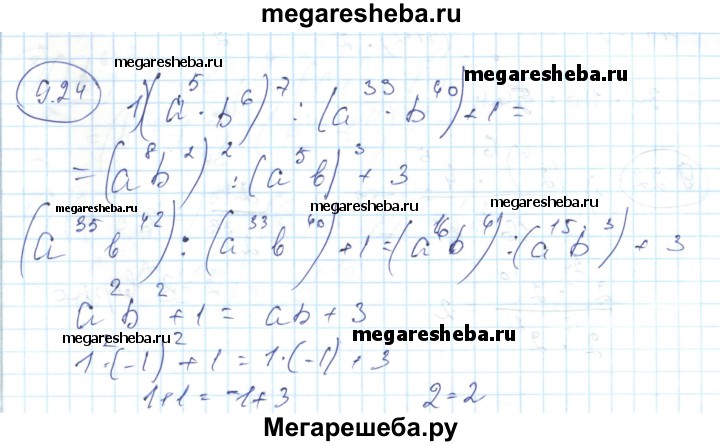 megaresheba.ru
megaresheba.ru
9.24
megaresheba.ru
1) (a⁵ · b⁶)⁷ : (a³³ · b⁴⁰) + 1 =
= (a⁸b²)² : (a⁵b)³ + 3
megaresheba.ru megaresheba.ru
(a³⁵b⁴²) : (a³³b⁴⁰) + 1 = (a¹⁶b⁴) : (a¹⁵b³) + 3
a²b² + 1 = ab + 3
megaresheba.ru megaresheba.ru
1²·(-1)² + 1 = 1·(-1) + 3
1+1 = -1+3 2=2
Мегарешеба.ру